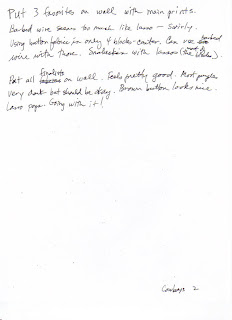 Put 3 favorites on wall with main prints.
Barbed wire seems too much like lasso – swirly.
Using button fabric in only 4 blocks – center. Can use barbed
wire with those. Snakeskin with lassos (the blocks).
Put all finalists on wall. Feels pretty good. Most purples
very dark but should be okay. Brown button looks nice.
Lasso pops. Going with it!
Cowboys 2